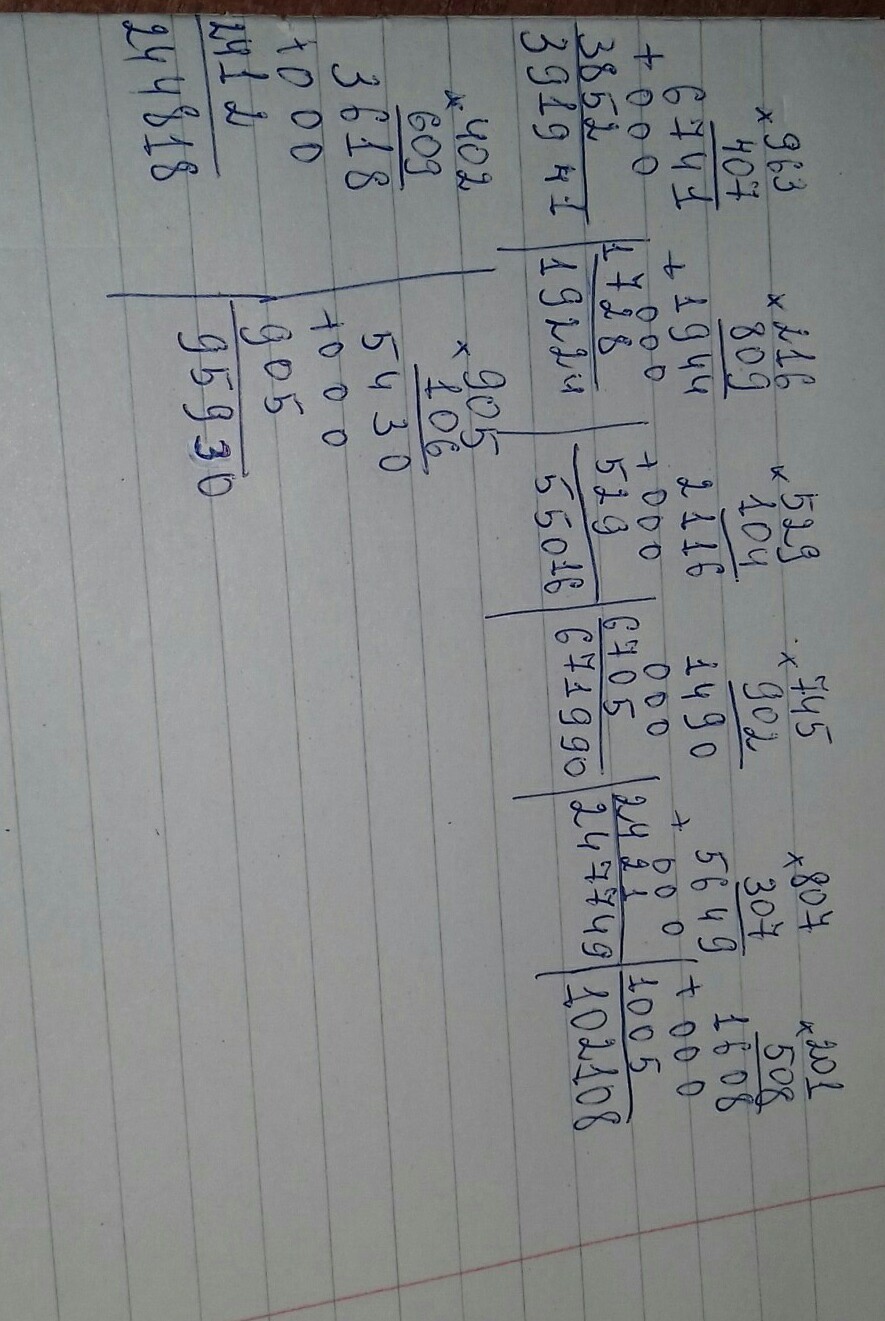 ×963
407
6741
+000
3852
391941
×216
809
+1944
000
1728
19224
×529
104
2116
+000
529
55016
×745
902
1490
000
6705
671990
×807
307
5649
+000
2421
247749
×201
508
1608
+000
1005
102108
×402
609
3618
+000
2412
244818
×905
106
5430
+000
905
95930